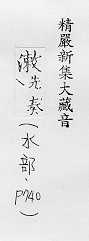 精嚴新集大藏音
潄、先奏(水部、P740)